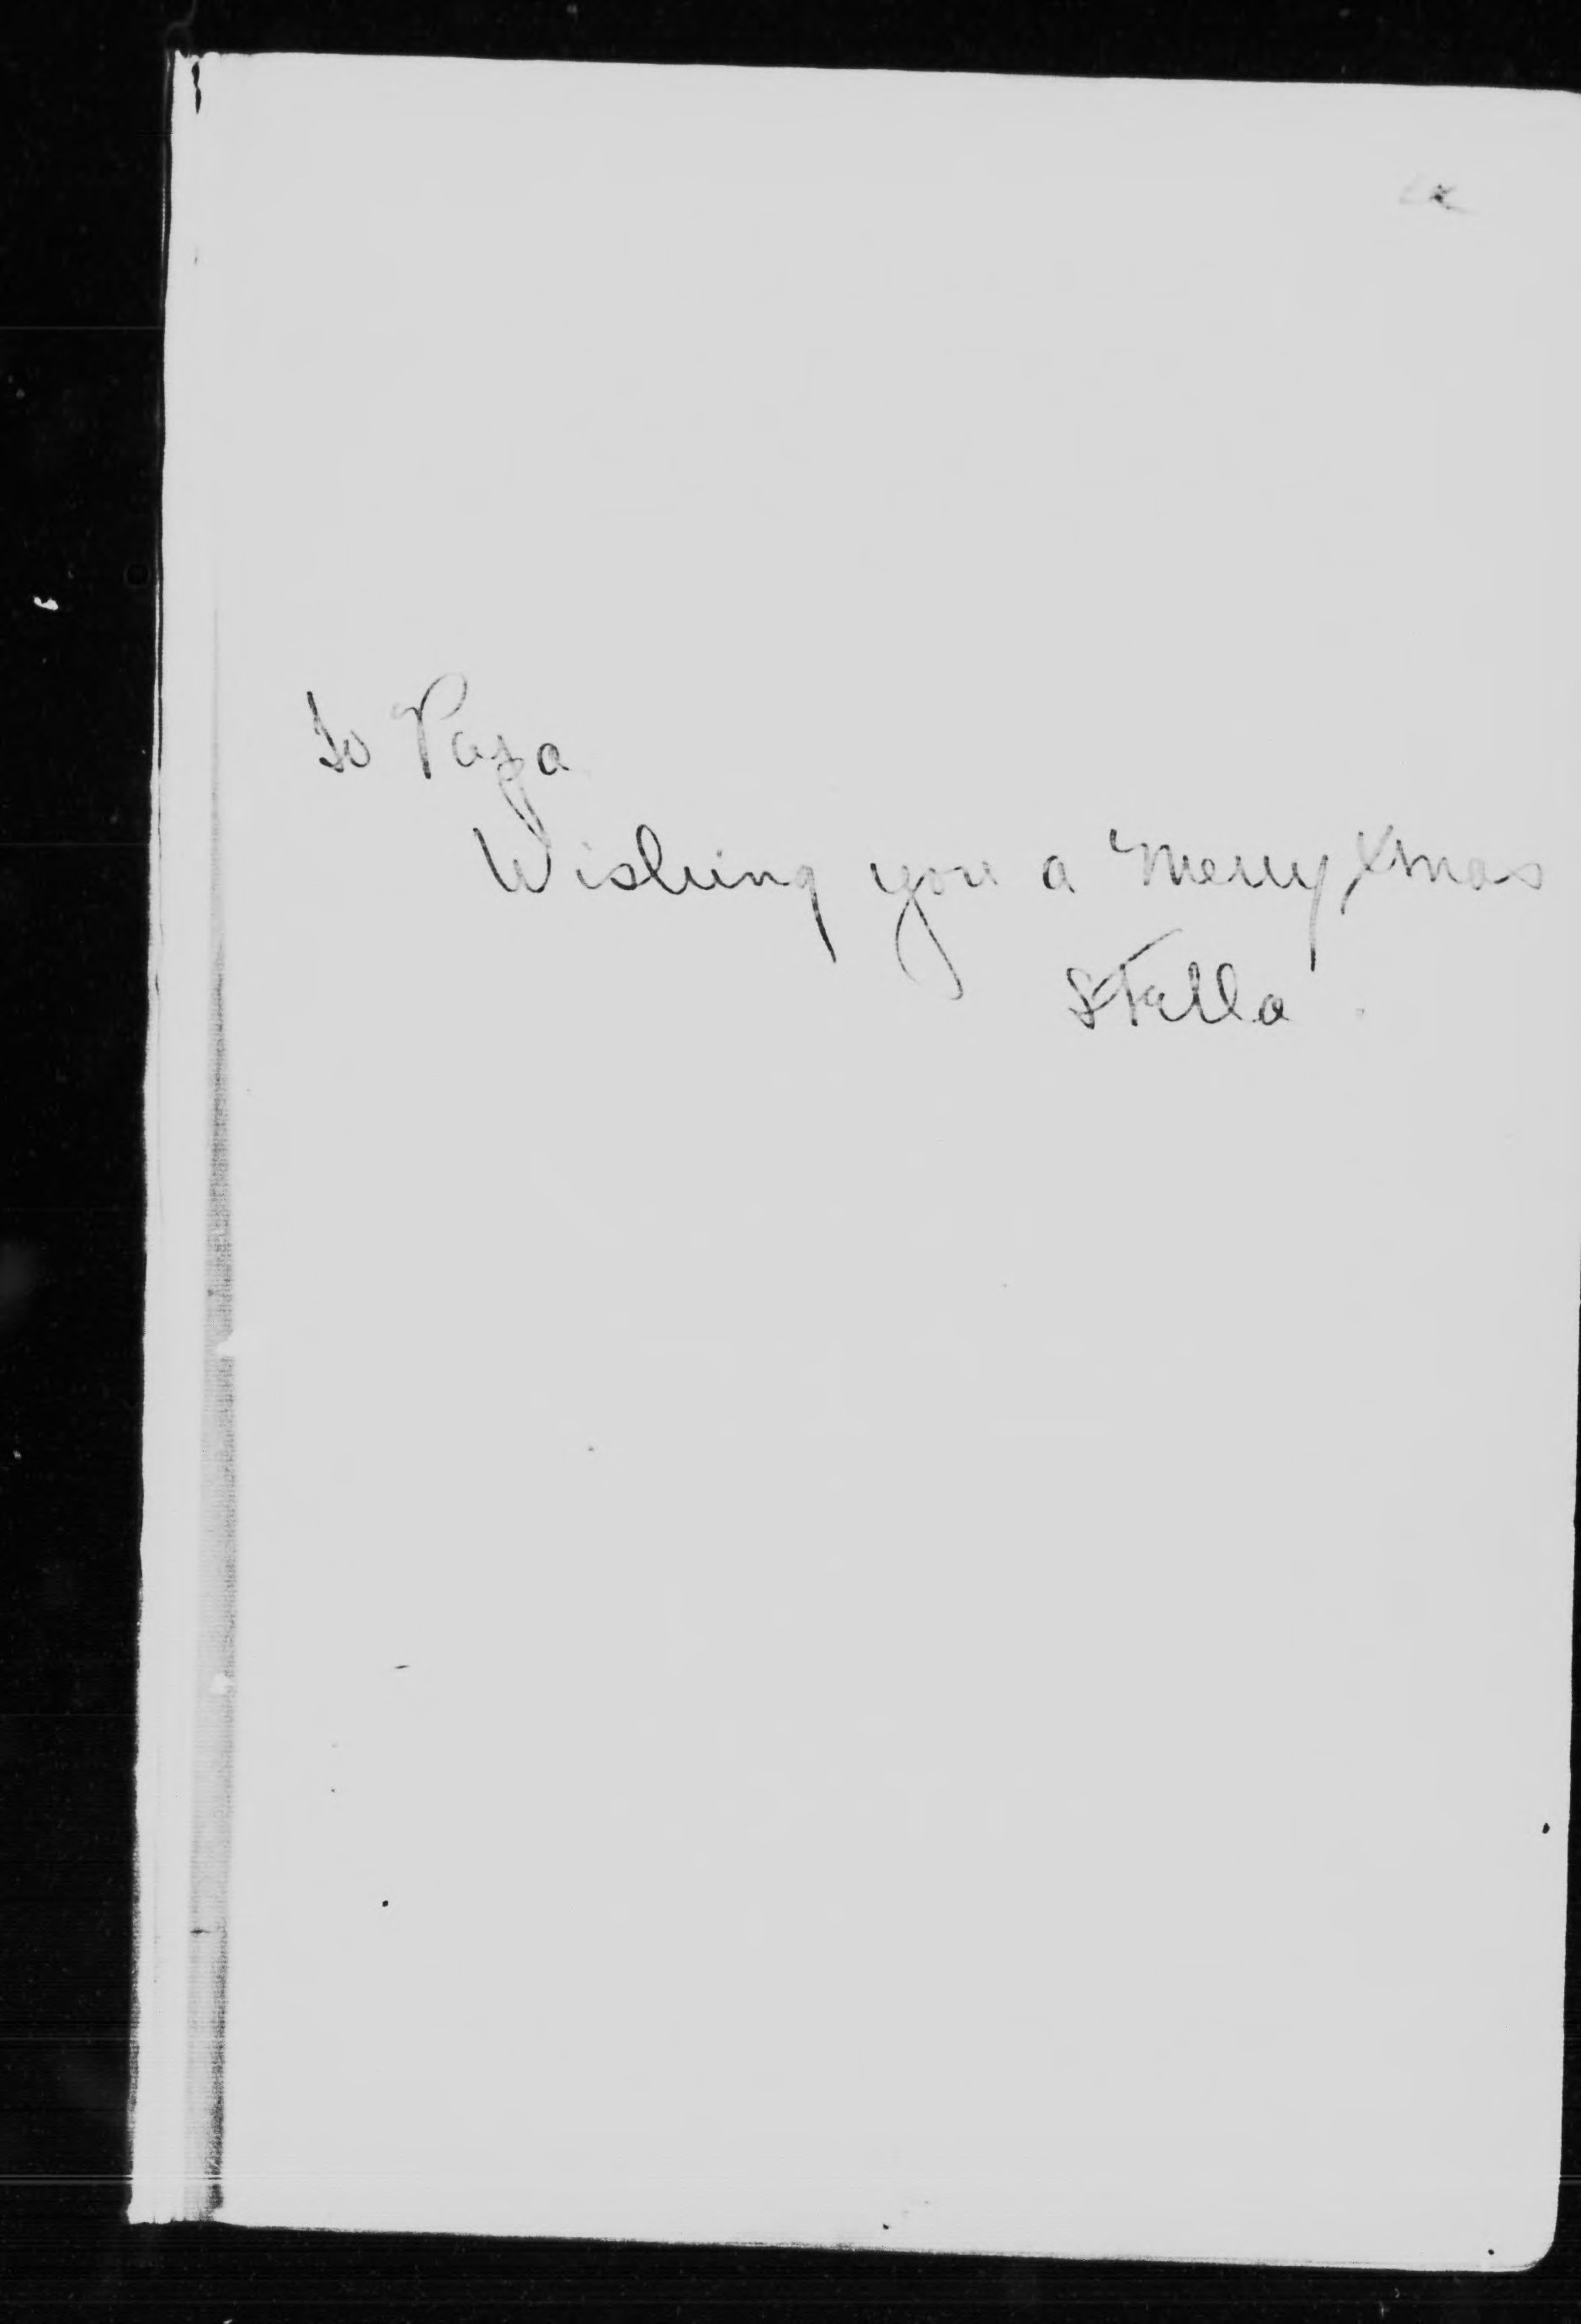 To Papa
Wishing you a Merry Xmas
Stella